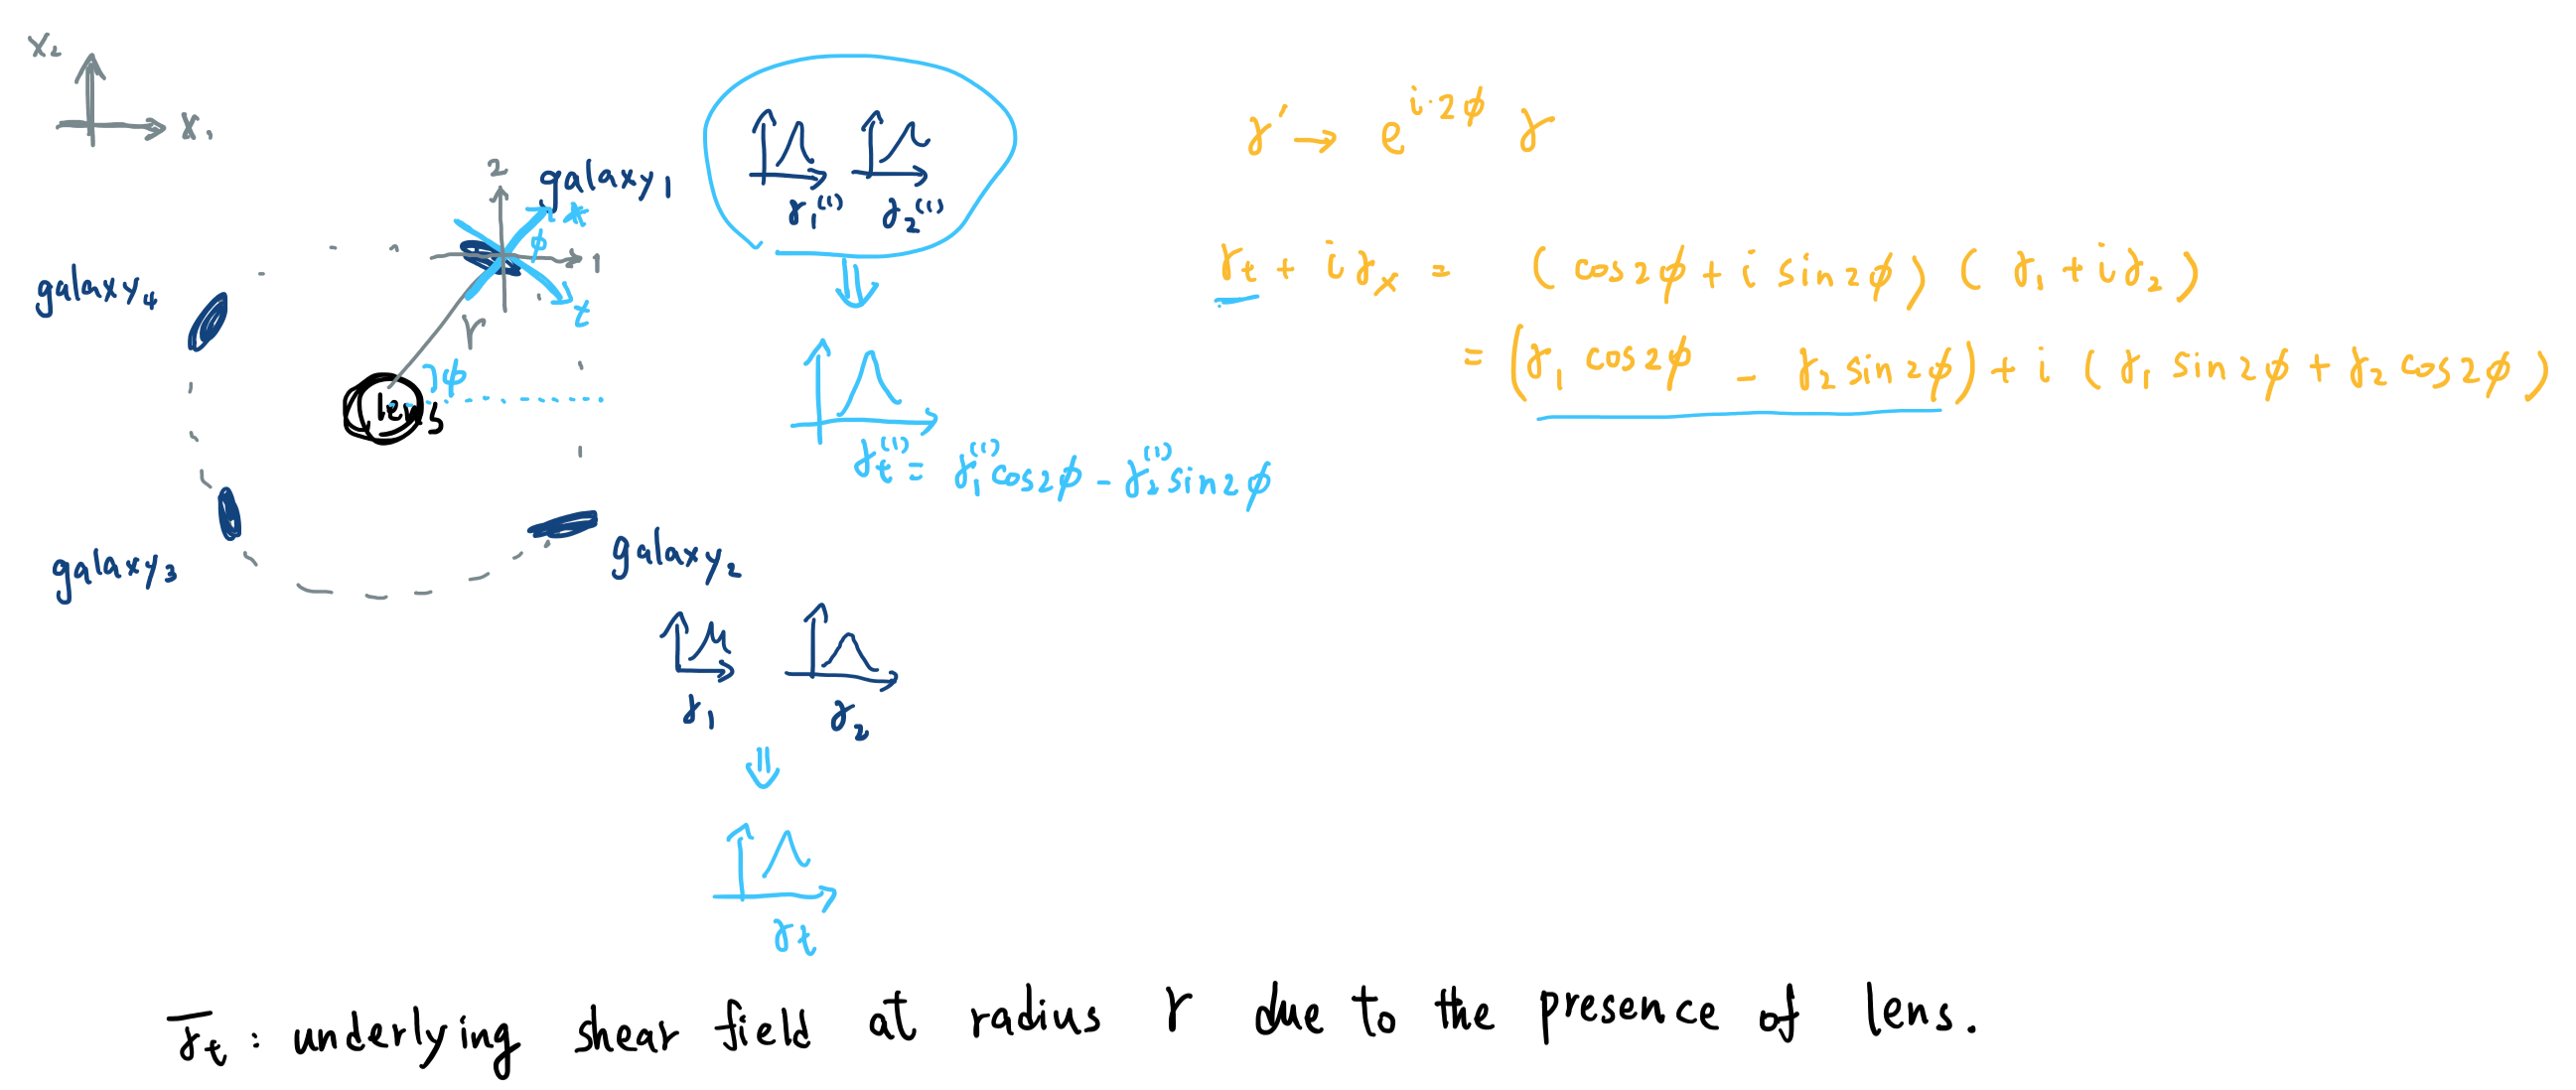 x₂
x₁
galaxy₁
2
x
ϕ
1
t
galaxy₄
r
ϕ
lens
galaxy₃
galaxy₂
γ₁⁽¹⁾ γ₂⁽¹⁾
γₜ⁽¹⁾ = γ₁⁽¹⁾cos2ϕ - γ₂⁽¹⁾sin2ϕ
γ₁ γ₂
γₜ
γ' → e^{i·2ϕ} γ
γₜ + iγₓ = (cos2ϕ + i sin2ϕ) (γ₁ + iγ₂)
= (γ₁ cos2ϕ - γ₂ sin2ϕ) + i (γ₁ sin2ϕ + γ₂ cos2ϕ)
γ̅ₜ : underlying shear field at radius r due to the presence of lens.